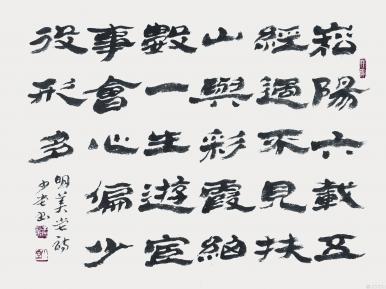 崧陽六載五
經過不見扶
山與彩霞絕
數一生遊宦
事會心偏少
役形多
明美岩詩